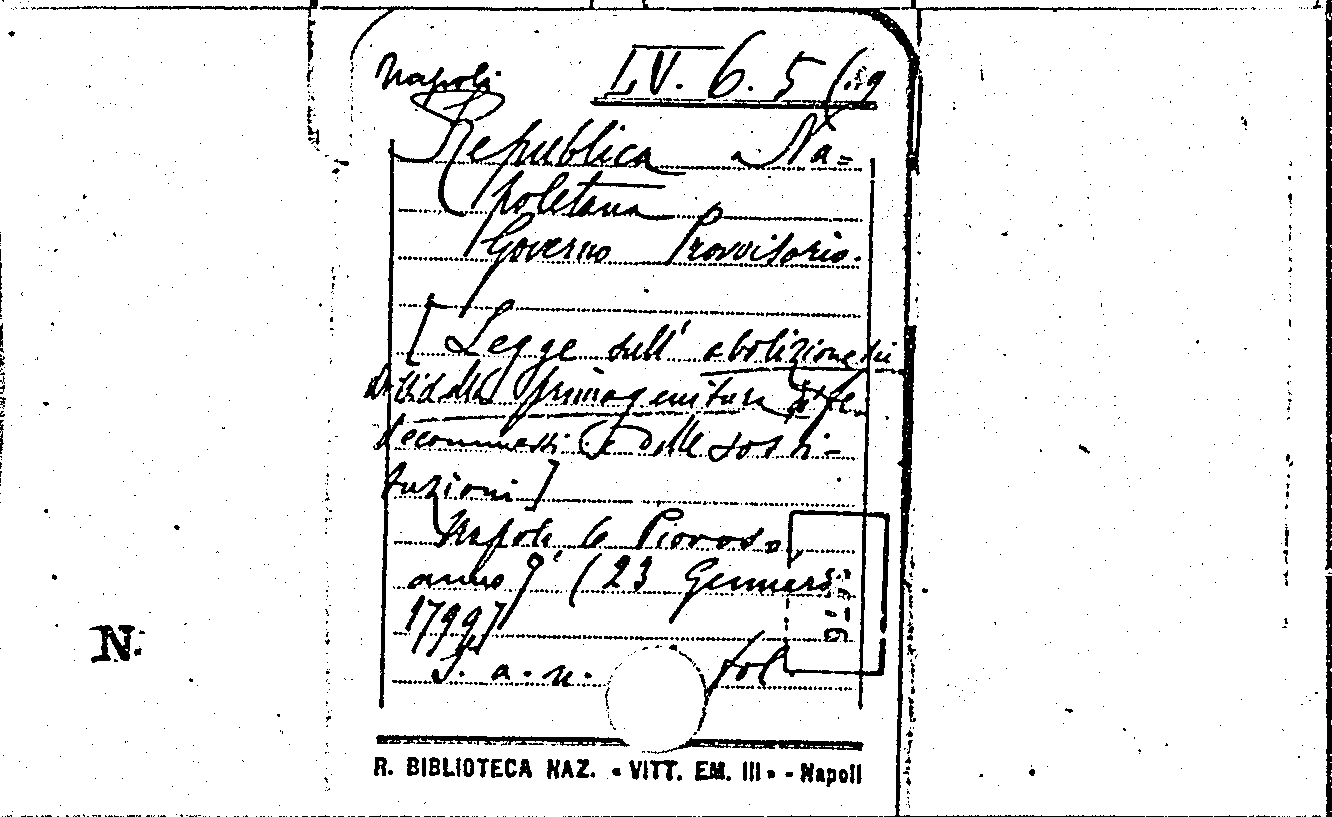 Napoli LV. 6. 5 (
Repubblica Na=
poletana
Governo Provvisorio.
[Legge sull' abolizione dei
primogenitura
decommessi e delle sosti-
tuzioni]
Napoli 6 Piovoso,
anno 7° (23 Gennaro
1799)
S. a. n. fol.
N.
R. BIBLIOTECA NAZ. « VITT. EM. III » - Napoli